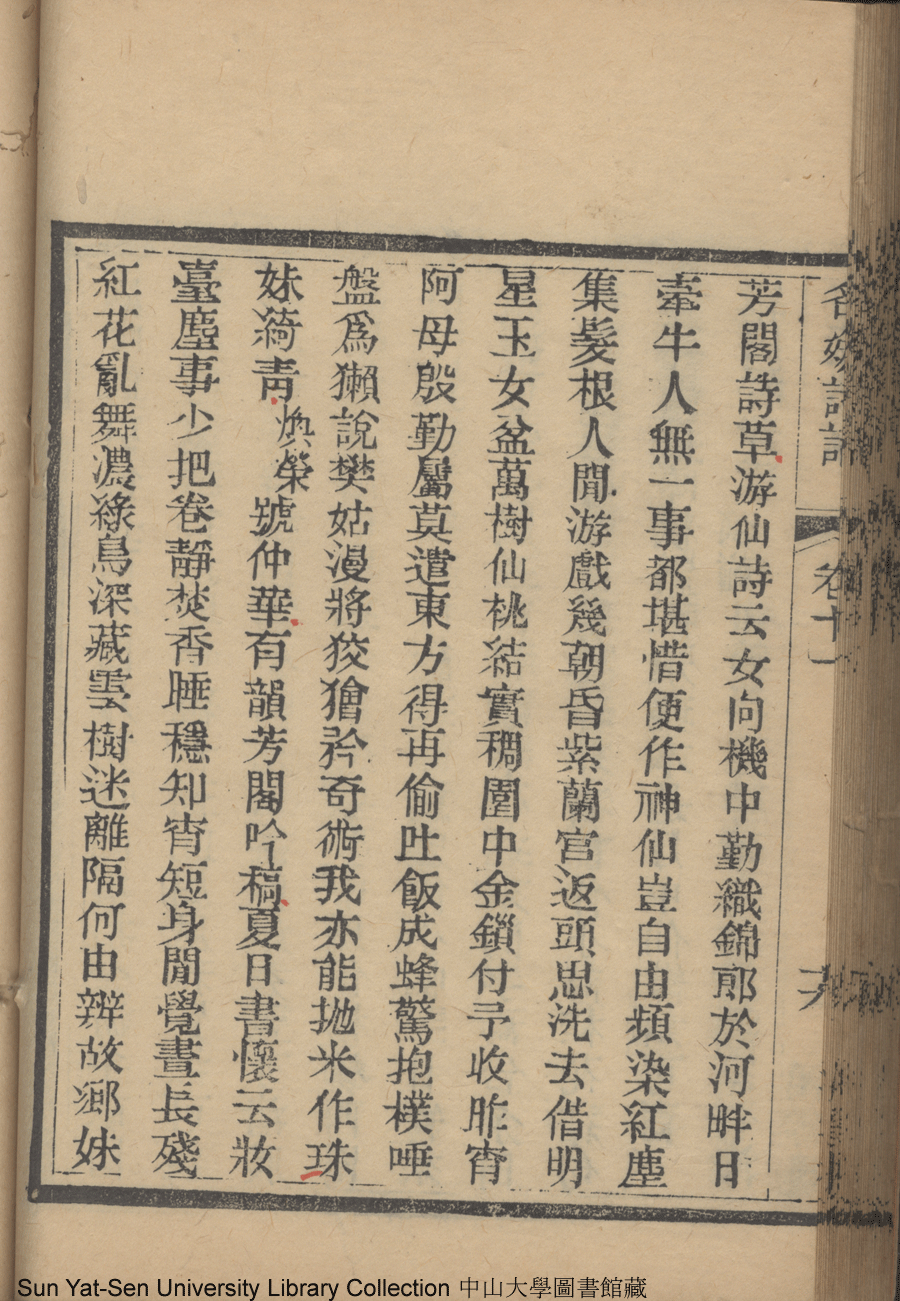 名媛詩話 卷十一
芳閣詩草游仙詩云女向機中勤織錦郎於河畔日
牽牛人無一事都堪惜便作神仙豈自由頻染紅塵
集髮根人間游戲幾朝昏紫蘭宮返頭思洗去借明
星玉女盆萬樹仙桃結實稠園中金鎖付予收昨宵
阿母殷勤屬莫遣東方得再偷吐飯成蜂驚抱樸唾
盤爲獺說樊姑漫將狡獪矜奇術我亦能拋米作珠
妹綺青煥榮號仲華有韻芳閣吟稿夏日書懷云妝
臺塵事少把卷靜焚香睡穩知宵短身閒覺晝長殘
紅花亂舞濃綠鳥深藏雲樹迷離隔何由辨故鄉妹
Sun Yat-Sen University Library Collection 中山大學圖書館藏